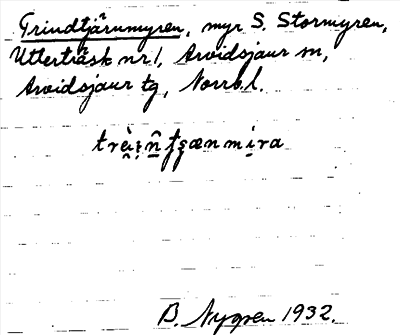 Trindtjärnmyren, myr S. Stormyren,
Utterträsk nr. 1, Arvidsjaur sn,
Arvidsjaur tg, Norrb. l.
B. Nygren 1932.